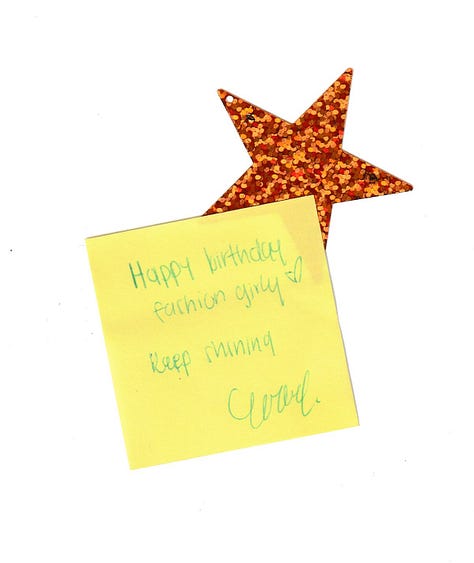 Happy birthday
fashion girly ♡
Keep shining